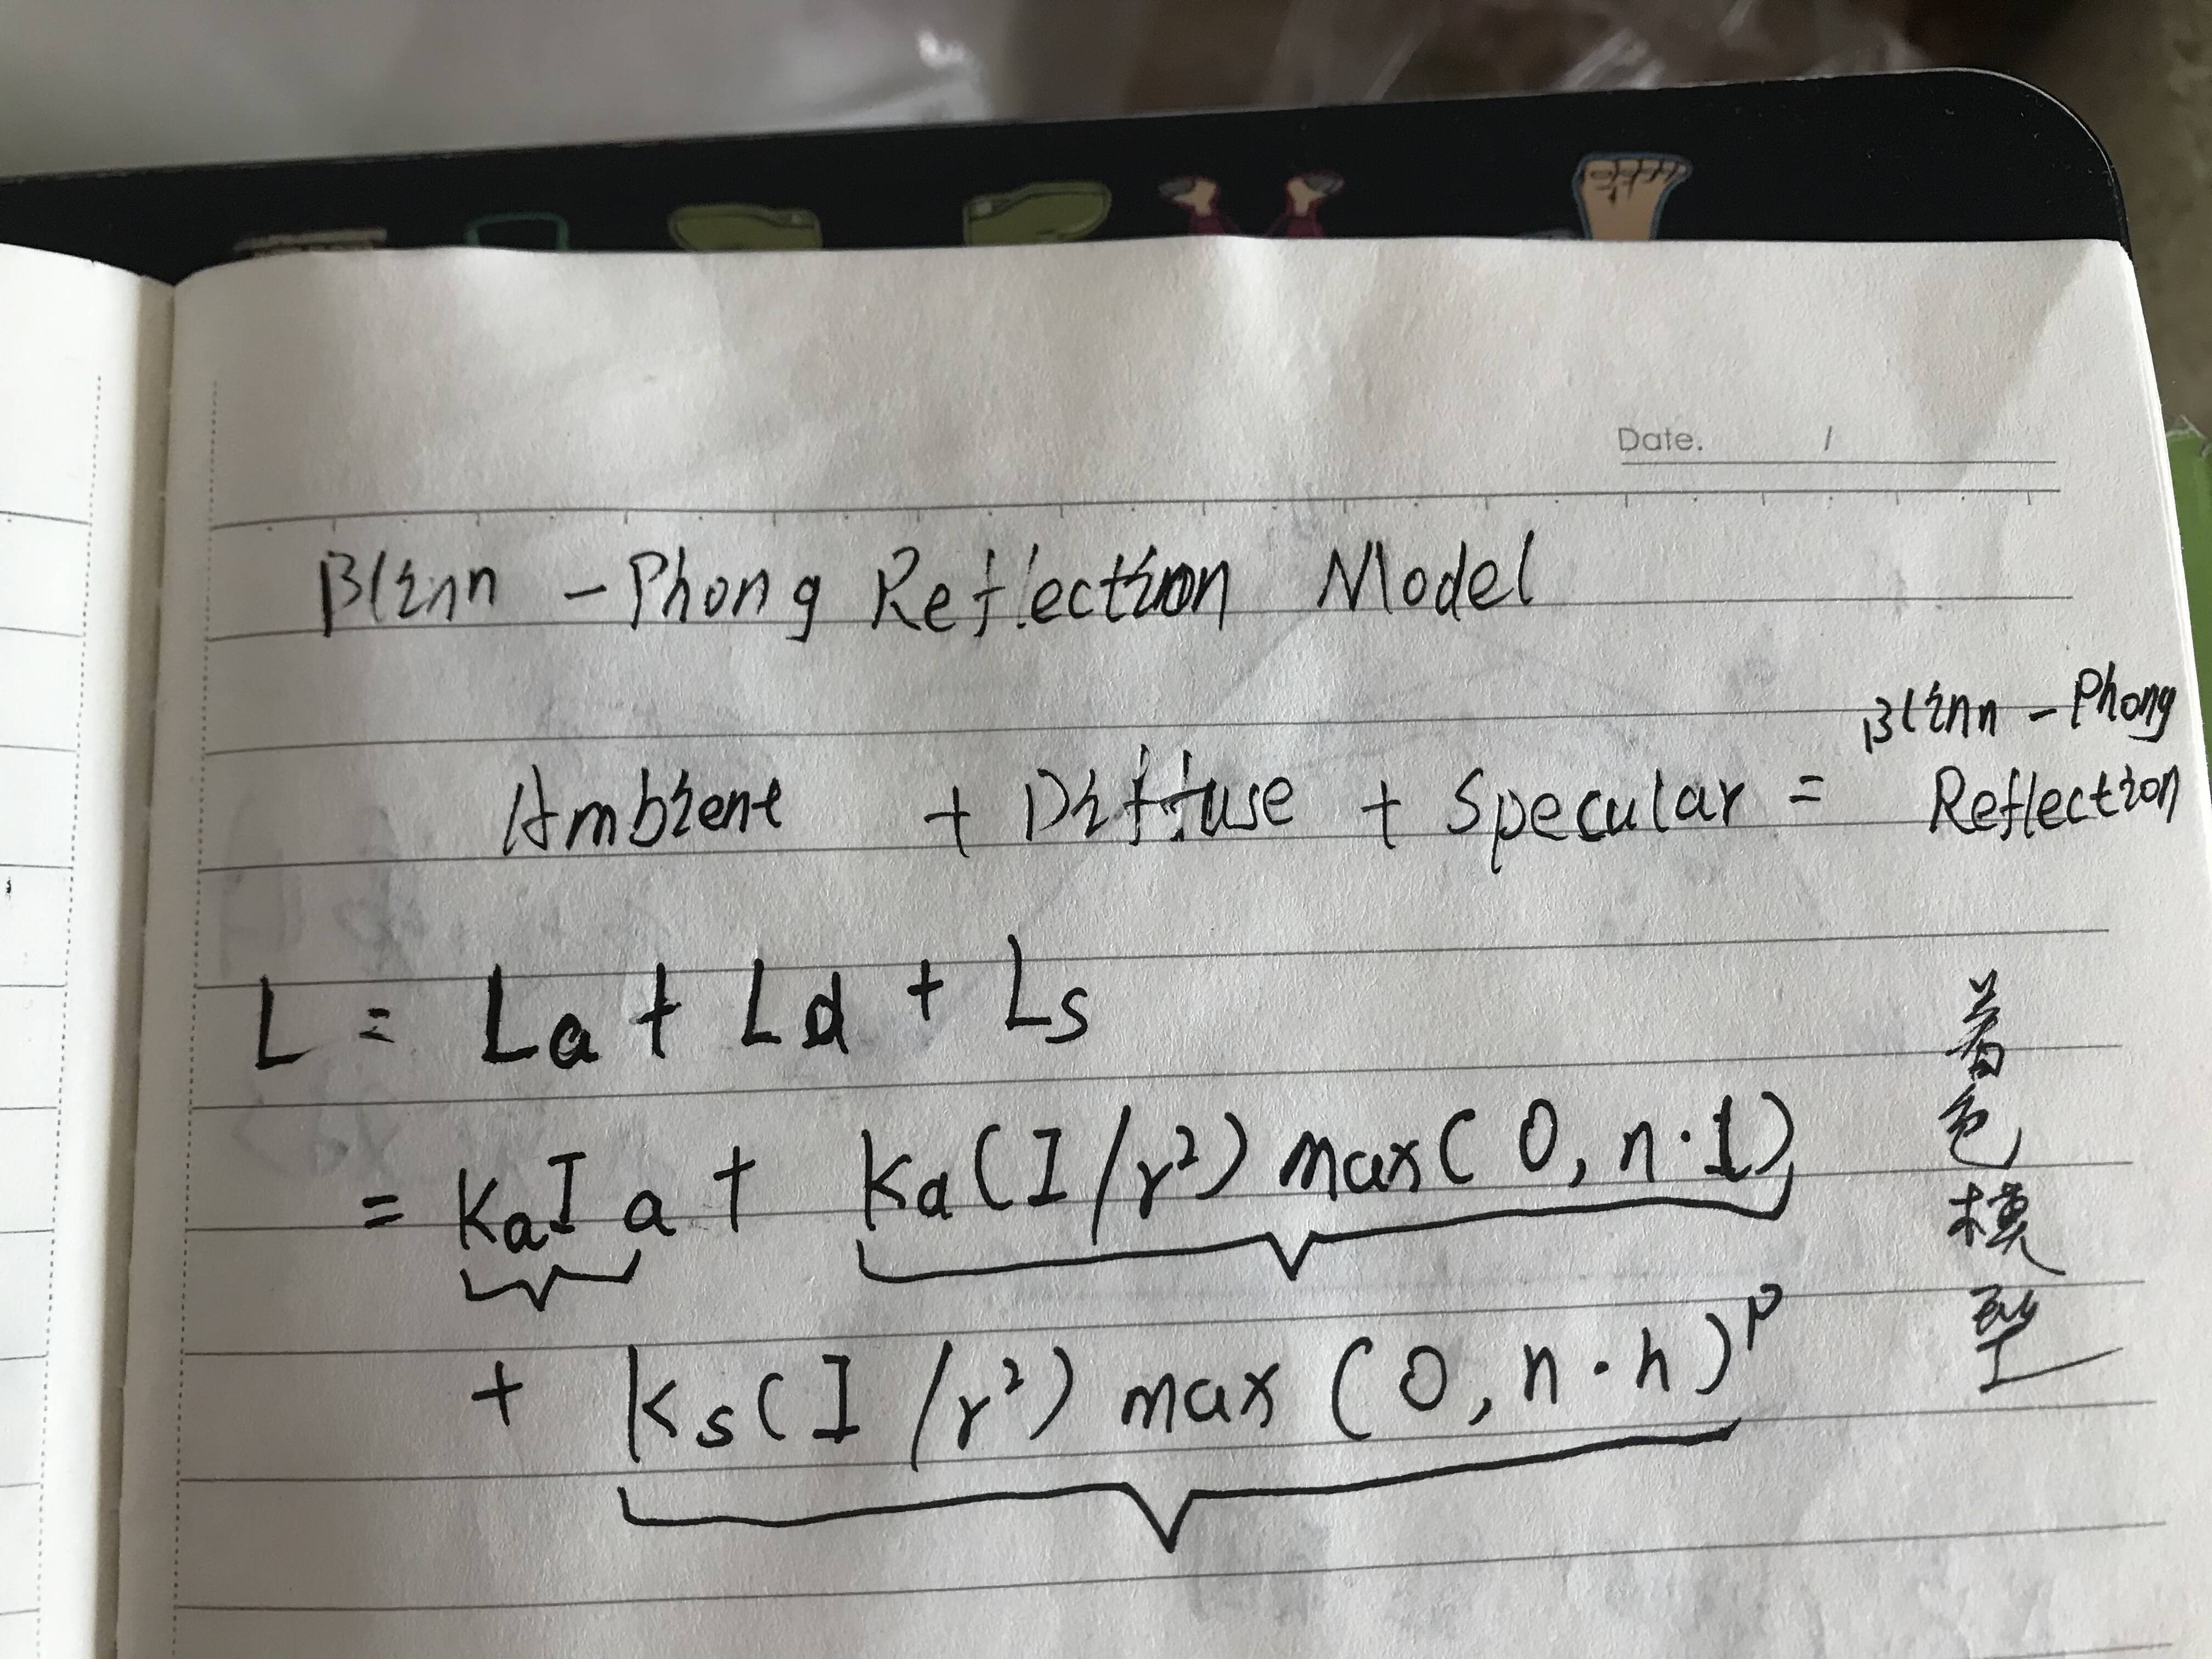 Date. /
Blinn - Phong Reflection Model
Ambient + Diffuse + Specular = Blinn - Phong Reflection
L = La + Ld + Ls
= kaIa + ka(I/r²) max(0, n·1)
+ ks(I/r²) max(0, n·h)ᵖ
着色模型